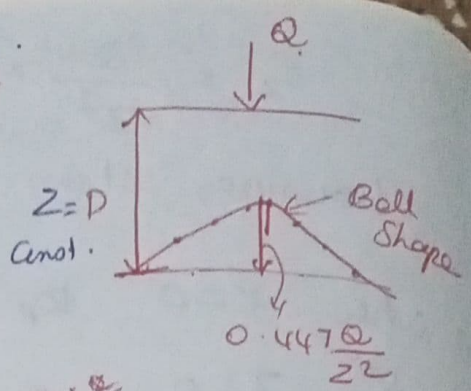 Q
Z=D
Const.
Ball
Shape
0.447 Q
Z2